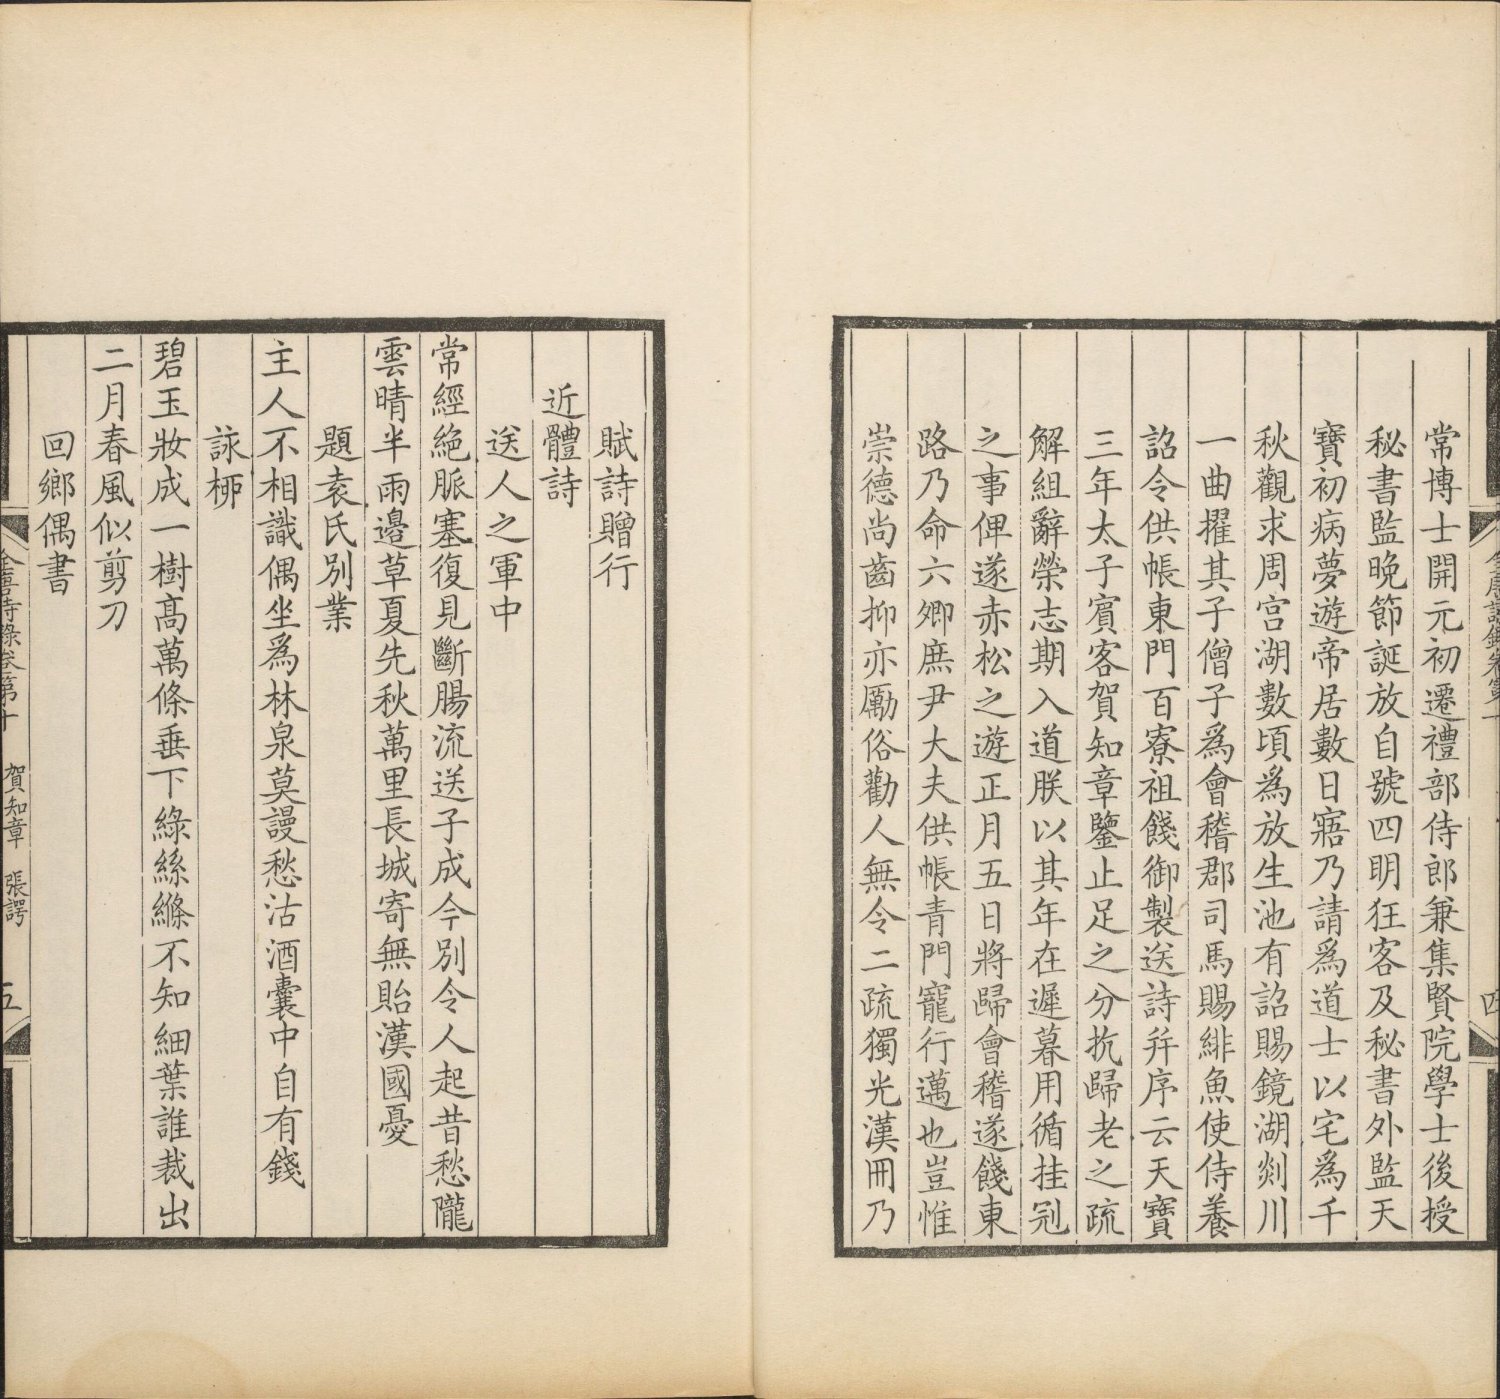 常博士開元初遷禮部侍郎兼集賢院學士後授
秘書監晚節誕放自號四明狂客及秘書外監天
寶初病夢遊帝居數日寤乃請爲道士以宅爲千
秋觀求周宮湖數頃爲放生池有詔賜鏡湖剡川
一曲擢其子僧子爲會稽郡司馬賜緋魚使侍養
詔令供帳東門百寮祖餞御製送詩幷序云天寶
三年太子賓客賀知章鑒止足之分抗歸老之疏
解組辭榮志期入道朕以其年在遲暮用循挂冠
之事俾遂赤松之遊正月五日將歸會稽遂餞東
路乃命六卿庶尹大夫供帳青門寵行邁也豈惟
崇德尚齒抑亦勵俗勸人無令二疏獨光漢冊乃
賦詩贈行
近體詩
送人之軍中
常經絶脈塞復見斷腸流送子成今別令人起昔愁隴
雲晴半雨邊草夏先秋萬里長城寄無貽漢國憂
題袁氏別業
主人不相識偶坐爲林泉莫謾愁沽酒囊中自有錢
詠桺
碧玉妝成一樹高萬條垂下綠絲絛不知細葉誰裁出
二月春風似剪刀
回鄉偶書
賀知章 張諤 五